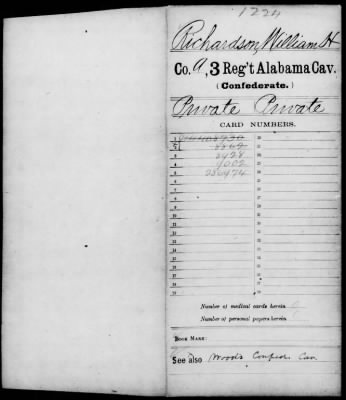 1224
Richardson, William H
Co. A, 3 Reg't Alabama Cav.
(Confederate.)
Private Private
CARD NUMBERS.
1 20
2 21
3 3428 22
4 9002 23
5 250974 24
6 25
7 26
8 27
9 28
10 29
11 30
12 31
13 32
14 33
15 34
16 35
17 36
18 37
19 38
Number of medical cards herein 0
Number of personal papers herein
BOOK MARK:
See also Woods Confed. Cav.